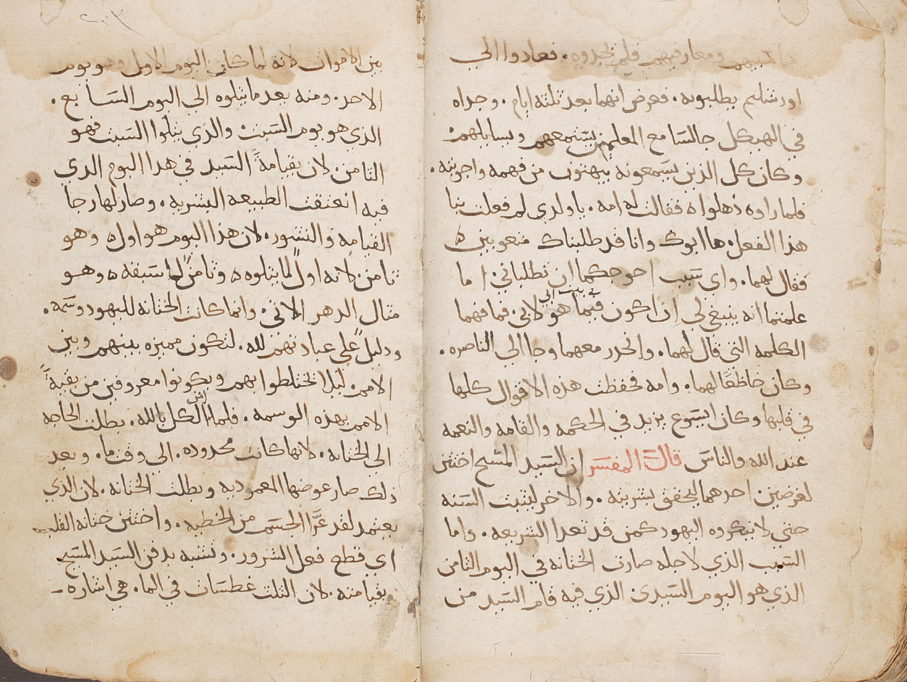 ومعارفهم فلم يجدوه. فعادوا الي
اورشليم يطلبونه. فعرض انهما بعد ثلثة ايام. وجداه
في الهيكل جالسا مع المعلمين يستمعهم ويسايلهم
وكان كل الذين يسمعونه يبهتون من فهمه واجوبته.
فلما راوه ذهلوا ه فقالت له امه. ياولدي لم فعلت بنا
هذا الفعل. ها ابوك وانا قد طلبناك متعوبين ه
فقال لهما. واي سبب احوجكما ان تطلباني. اما
علمتما انه ينبغي لي ان اكون فيما هو لابي. فما فهما
الكلمه التي قال لهما. وانحدر معهما وجا الي الناصره.
وكان خاظعا لهما. وامه فحفظت هذه الاقوال كلها
في قلبها وكان ايسوع يزيد في الحكمه والقامه والنعمه
عند الله والناس قال المفسر ان السيد المسيح اختتن
لغرضين احدهما ليحقق بشريته. والاخر ليثبت السنه
حتي لا ينكروه اليهود كمن قد تعدا الشريعه. واما
السبب الذي لاجله صارت الختانه في اليوم الثامن
الذي هو اليوم السيدي الذي فيه قام السيد من
بين الاموات لانه لما كان اليوم الاول وهو يوم
الاحد. ومنه بعد ما يتلوه الي اليوم السابع.
الذي هو يوم السبت والذي يتلوا السبت فهو
الثامن لان بقيامة السيد في هذا اليوم الذي
فيه انعتقت الطبيعه البشريه. وصار لها رجا
القيامه والنشور. لان هذا اليوم هو اول ه وهو
ثامن. لانه اول لما يتلوه ه وثامن لما سبقه ه وهو
مثال الدهر الاتي. وانما كانت الختانه لليهود وسمه.
ودليل علي عبادتهم لله. لتكون مميزه بينهم وبين
الامم. ليلا يختلطوا بهم ويكونوا معروفين من بقية
الامم بهذه الوسمه. فلما امن الكل بالله. بطلت الحاجه
الي الختانه. لانها كانت محدوده. الي وقت ما. وبعد
ذلك صار عوضها المعموديه وبطلت الختانه. لان الذي
يعتمد لقد عرا الجسم من الخطيه. واختتن ختانة القلب
اي قطع فعل الشرور. وتشبه بدفن السيد المسيح
بقيامته. لان الثلث غطسات في الما. هي اشاره